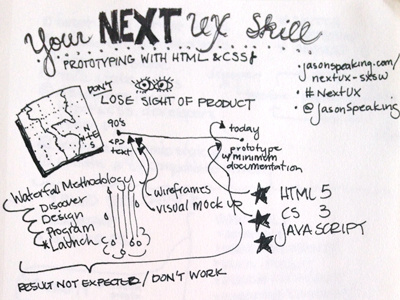 Your NEXT UX Skill
PROTOTYPING WITH HTML & CSS!
• jasonspeaking.com/
nextux-sxsw
• # NextUX
• @JasonSpeaking
DON'T
LOSE SIGHT OF PRODUCT
90's
<P>
text
today
prototype
w/minimum
documentation
N
W E
S
wireframes
visual mock up
Waterfall Methodology
Discover
Design
Program
Launch
HTML 5
CS 3
JAVASCRIPT
RESULT NOT EXPECTED / DON'T WORK